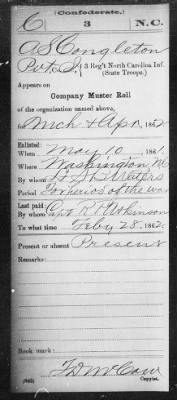 (Confederate.)
C 3 N.C.
A S Congleton
Pvt, Co. I, 3 Reg't North Carolina Inf.
(State Troops.)
Appears on
Company Muster Roll
of the organization named above,
for Mch & Apr, 1862.
Enlisted:
When May 10, 1861.
Where Washington NC
By whom
Period
Last paid:
By whom Capt R F Atkinson
To what time Feby 28, 1862.
Present or absent Present
Remarks:
Book mark:
Copyist.